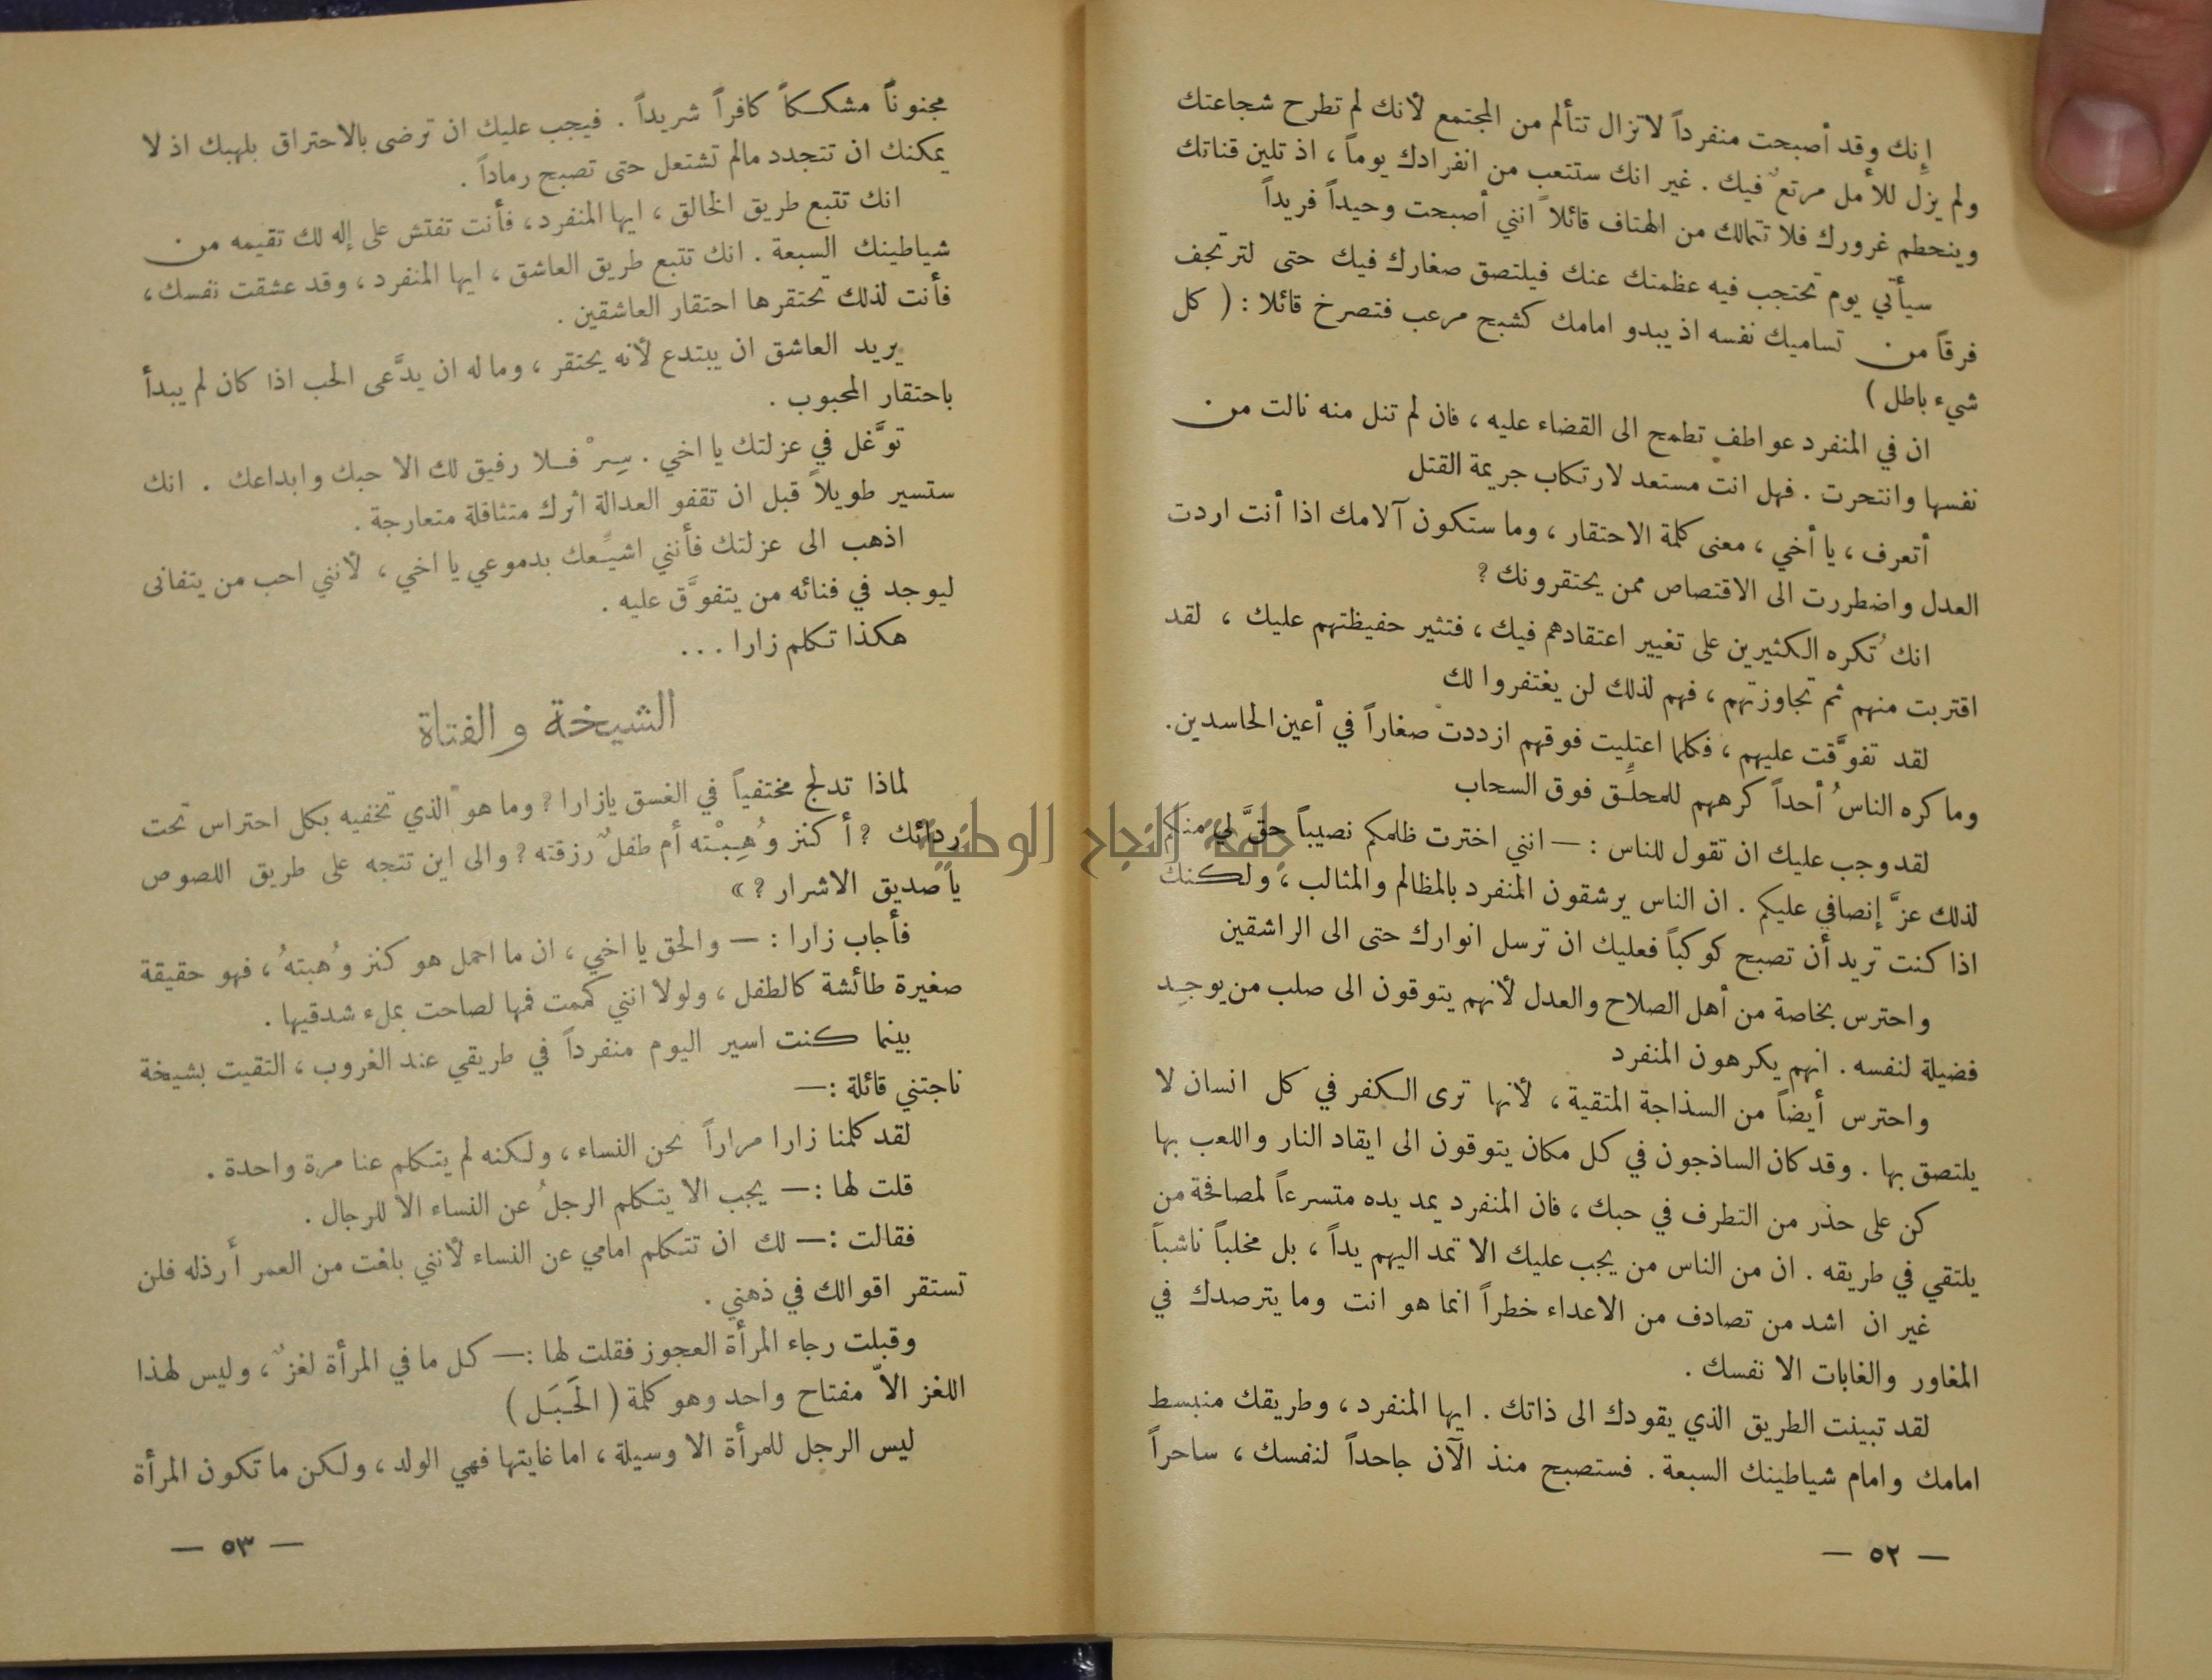 إنك وقد أصبحت منفرداً لا تزال تتألم من المجتمع لأنك لم تطرح شجاعتك
ولم يزل للأمل مرتعٌ فيك . غير انك ستتعب من انفرادك يوماً ، اذ تلين قناتك
وينحطم غرورك فلا تتمالك من الهتاف قائلاً انني أصبحت وحيداً فريداً
سيأتي يوم تحتجب فيه عظمتك عنك فيلتصق صغارك فيك حتى لترتجف
فرقاً من تساميك نفسه اذ يبدو امامك كشبح مرعب فتصرخ قائلا : ( كل
شيء باطل )
ان في المنفرد عواطف تطمح الى القضاء عليه ، فان لم تنل منه نالت من
نفسها وانتحرت . فهل انت مستعد لارتكاب جريمة القتل
أتعرف ، يا أخي ، معنى كلمة الاحتقار ، وما ستكون آلامك اذا أنت اردت
العدل واضطررت الى الاقتصاص ممن يحتقرونك ؟
انك تُكره الكثيرين على تغيير اعتقادهم فيك ، فتثير حفيظتهم عليك ، لقد
اقتربت منهم ثم تجاوزتهم ، فهم لذلك لن يغتفروا لك
لقد تفوَّقت عليهم ، فكلما اعتليت فوقهم ازددت صغاراً في أعين الحاسدين .
وما كره الناسُ أحداً كرههم للمحلِّق فوق السحاب
لقد وجب عليك ان تقول للناس : — انني اخترت ظلمكم نصيباً حقَّ لي منكم
لذلك عزَّ إنصافي عليكم . ان الناس يرشقون المنفرد بالمظالم والمثالب ، ولكنك
اذا كنت تريد أن تصبح كوكباً فعليك ان ترسل انوارك حتى الى الراشقين
واحترس بخاصة من أهل الصلاح والعدل لأنهم يتوقون الى صلب من يوجِد
فضيلة لنفسه . انهم يكرهون المنفرد
واحترس أيضاً من السذاجة المتقية ، لأنها ترى الكفر في كل انسان لا
يلتصق بها . وقد كان الساذجون في كل مكان يتوقون الى ايقاد النار واللعب بها
كن على حذر من التطرف في حبك ، فان المنفرد يمد يده متسرعاً لمصافحة من
يلتقي في طريقه . ان من الناس من يجب عليك الا تمد اليهم يداً ، بل مخلباً ناشباً
غير ان اشد من تصادف من الاعداء خطراً انما هو انت وما يترصدك في
المغاور والغابات الا نفسك .
لقد تبينت الطريق الذي يقودك الى ذاتك . ايها المنفرد ، وطريقك منبسط
امامك وامام شياطينك السبعة . فستصبح منذ الآن جاحداً لنفسك ، ساحراً
— ٥٢ —
مجنوناً مشككاً كافراً شريداً . فيجب عليك ان ترضى بالاحتراق بلهبك اذ لا
يمكنك ان تتجدد مالم تشتعل حتى تصبح رماداً .
انك تتبع طريق الخالق ، ايها المنفرد ، فأنت تفتش على إله لك تقيمه من
شياطينك السبعة . انك تتبع طريق العاشق ، ايها المنفرد ، وقد عشقت نفسك ،
فأنت لذلك تحتقرها احتقار العاشقين .
يريد العاشق ان يبتدع لأنه يحتقر ، وما له ان يدَّعى الحب اذا كان لم يبدأ
باحتقار المحبوب .
توَّغل في عزلتك يا اخي . سِرْ فلا رفيق لك الا حبك وابداعك . انك
ستسير طويلاً قبل ان تقفو العدالة اثرك متثاقلة متعارجة .
اذهب الى عزلتك فأنني اشيِّعك بدموعي يا اخي ، لأنني احب من يتفانى
ليوجد في فنائه من يتفوَّق عليه .
هكذا تكلم زارا . . .
الشيخة والفتاة
لماذا تدلج مختفياً في الغسق يازارا ؟ وما هو الذي تخفيه بكل احتراس تحت
ردائك ؟ أ كنز وُهِبْته أم طفلٌ رزقته ؟ والى اين تتجه على طريق اللصوص
يا صديق الاشرار ؟ »
فأجاب زارا : — والحق يا اخي ، ان ما احمل هو كنز وُهبتهُ ، فهو حقيقة
صغيرة طائشة كالطفل ، ولولا انني كممت فمها لصاحت بملء شدقيها .
بينما كنت اسير اليوم منفرداً في طريقي عند الغروب ، التقيت بشيخة
ناجتني قائلة : —
لقد كلمنا زارا مراراً نحن النساء ، ولكنه لم يتكلم عنا مرة واحدة .
قلت لها : — يجب الا يتكلم الرجلُ عن النساء الا للرجال .
فقالت : — لك ان تتكلم امامي عن النساء لأنني بلغت من العمر أرذله فلن
تستقر اقوالك في ذهني .
وقبلت رجاء المرأة العجوز فقلت لها : — كل ما في المرأة لغزٌ ، وليس لهذا
اللغز الاّ مفتاح واحد وهو كلمة ( الحَبَل )
ليس الرجل للمرأة الا وسيلة ، اما غايتها فهي الولد ، ولكن ما تكون المرأة
— ٥٣ —
جامعة النجاح الوطنية